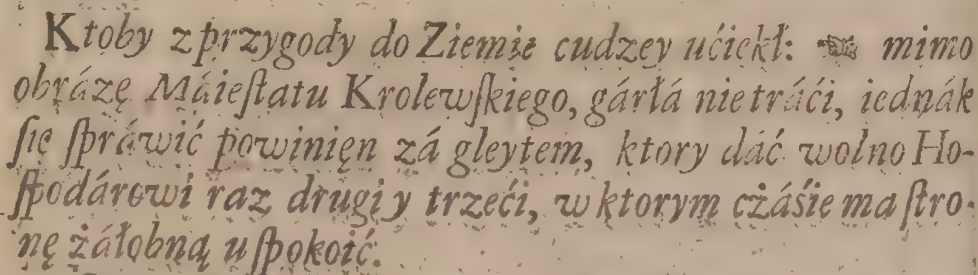 Ktoby z przygody do Ziemie cudzey ućiekł: ☙ mimo
obrázę Máieſtatu Krolewſkiego, gárłá nie tráći, iednák
ſię ſpráwić powinięn zá gleytem, ktory dáć wolno Ho-
ſpodárowi raz drugi y trzeći, w ktorym cżáśie ma ſtro-
nę żáłobną uſpokoić.